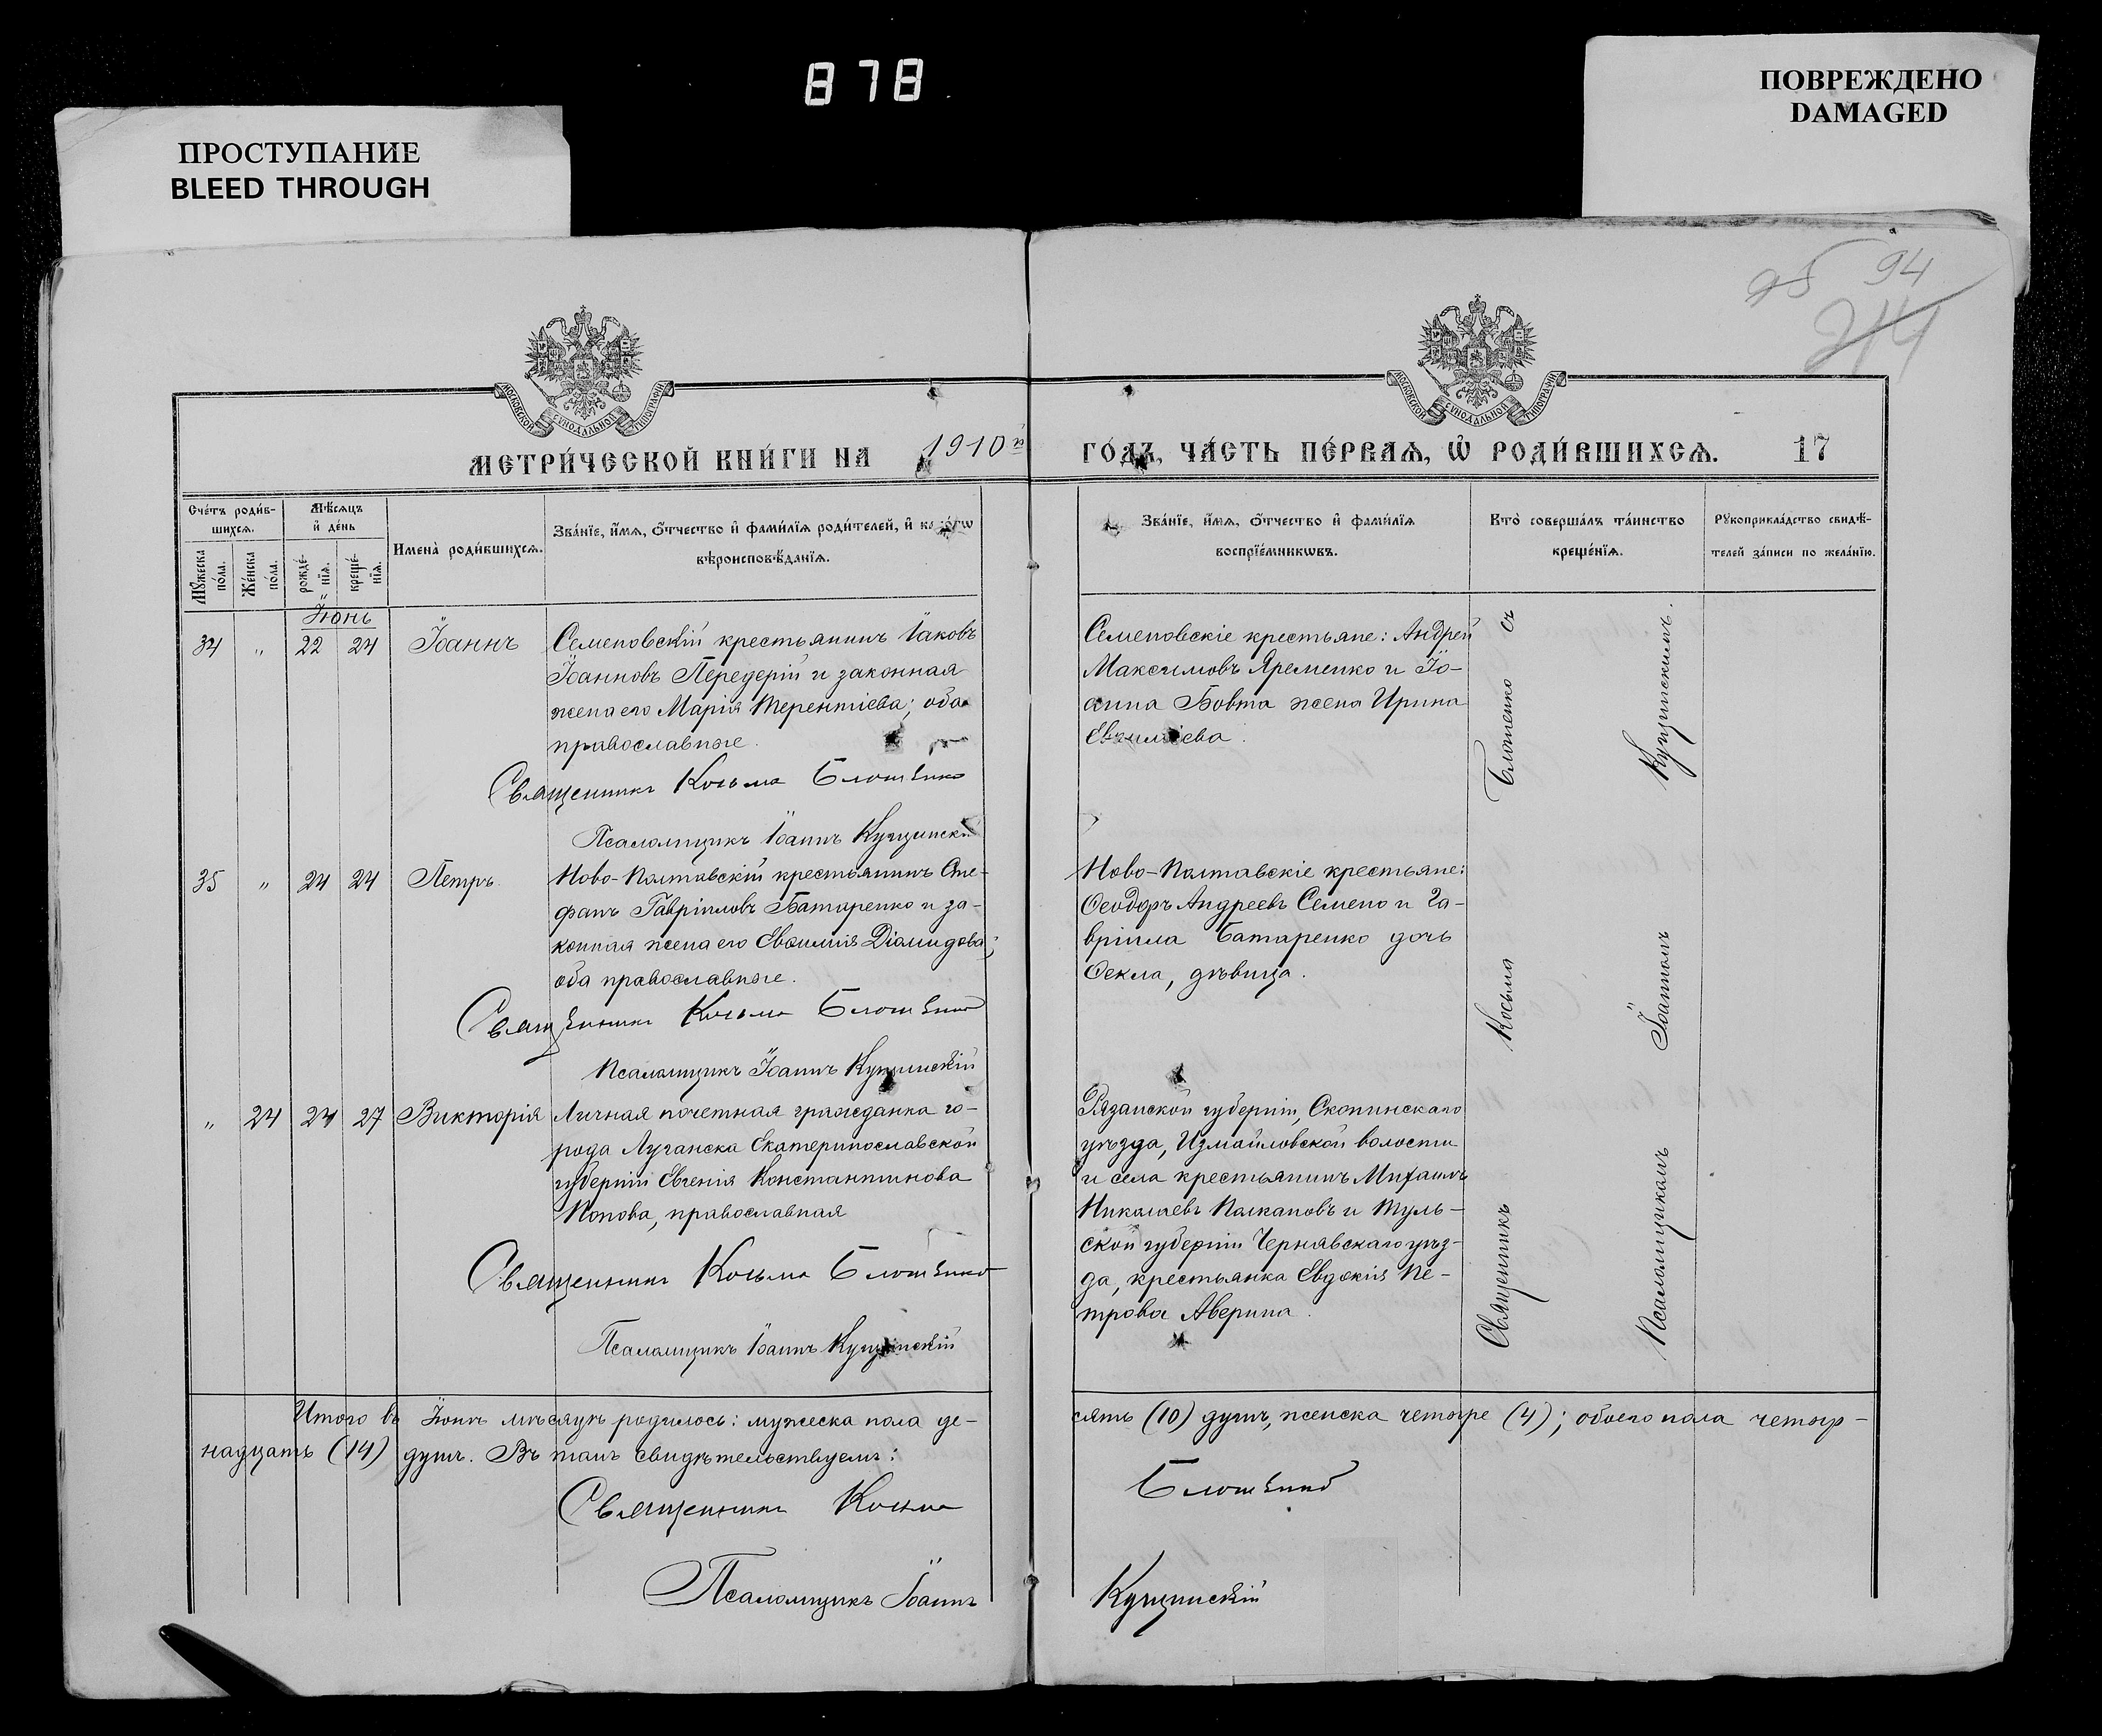 878
ПРОСТУПАНИЕ
BLEED THROUGH
ПОВРЕЖДЕНО
DAMAGED
95 94
214
МОСКОВСКОЙ СѴНОДАЛЬНОЙ ТИПОГРАФІИ
МОСКОВСКОЙ СѴНОДАЛЬНОЙ ТИПОГРАФІИ
МЕТРИ́ЧЕСКОЙ КНИ́ГИ НА 1910й ГО́ДЪ, ЧА́СТЬ ПЕ́РВАѦ, Ѡ҆ РОДИ́ВШИХСѦ. 17
Сче́тъ роди́в-
шихсѧ.
Мꙋ́жеска по́ла.
Же́нска по́ла.
Мѣ́сѧцъ
и҆ де́нь
рожде́-
нїѧ.
креще́-
нїѧ.
Имена̀ роди́вшихсѧ.
Зва́нїе, и҆́мѧ, ѻ҆́тчество и҆ фами́лїѧ роди́телей, и҆ како́гѡ
вѣроисповѣ́данїѧ.
Зва́нїе, и҆́мѧ, ѻ҆́тчество и҆ фами́лїѧ
воспрїе́мникѡвъ.
Кто̀ соверша́лъ та́инство
креще́нїѧ.
Рꙋкоприкла́дство свидѣ́-
телей за́писи по жела́нїю.
Іюнь
34 " 22 24 Іоаннъ
Семеновскій крестьянинъ Іаковъ
Іоанновъ Передерій и законная
жена его Марія Терентіева; оба
православные.
Священникъ Косьма Блошенко
Псаломщикъ Іоаннъ Кущинскій
Семеновскіе крестьяне: Андрей
Максимовъ Яременко и Іо-
анна Бовта жена Ирина
Евѳиміева.
35 " 24 24 Петръ
Ново-Полтавскій крестьянинъ Сте-
фанъ Гавріиловъ Батаренко и за-
конная жена его Евѳимія Діомидова;
оба православные.
Священникъ Косьма Блошенко
Псаломщикъ Іоаннъ Кущинскій
Ново-Полтавскіе крестьяне:
Ѳеодоръ Андреевъ Семено и Га-
вріила Батаренко дочь
Ѳекла, дѣвица.
" 24 24 27 Викторія
Личная почетная гражданка го-
рода Луганска Екатеринославской
губерніи Евгенія Константинова
Попова, православная
Священникъ Косьма Блошенко
Псаломщикъ Іоаннъ Кущинскій
Рязанской губерніи, Скопинскаго
уѣзда, Измайловской волости
и села крестьянинъ Михаилъ
Николаевъ Полкановъ и Туль-
ской губерніи Чернявскаго уѣз-
да, крестьянка Евдокія Пе-
трова Аверина.
Священникъ Косьма Блошенко съ
Псаломщикомъ Іоанномъ Кущинскимъ.
Итого въ Іюнѣ мѣсяцѣ родилось: мужеска пола де-сять (10) душъ, женска четыре (4); обоего пола четыр-
надцать (14) душъ. Въ томъ свидѣтельствуемъ:
Священникъ Косьма Блошенко
Псаломщикъ Іоаннъ Кущинскій